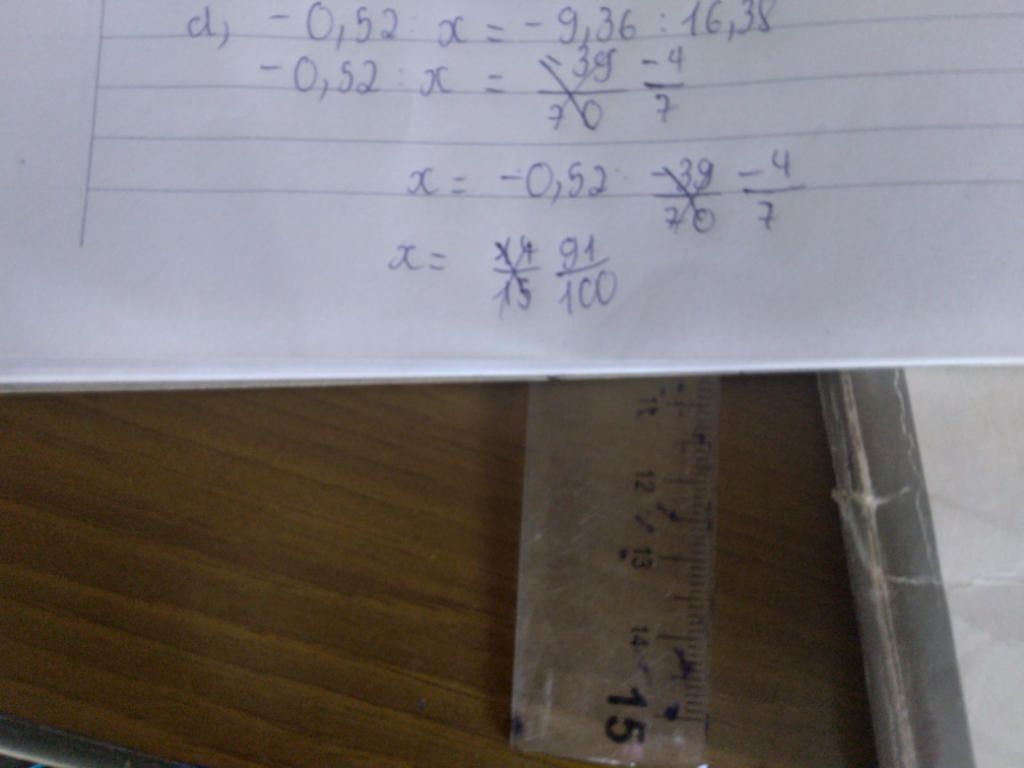 d, -0,52 : x = -9,36 : 16,38
-0,52 : x = -39/70 -4/7
x = -0,52 : -39/70 -4/7
x = 14/15 91/100
12
13
14
15